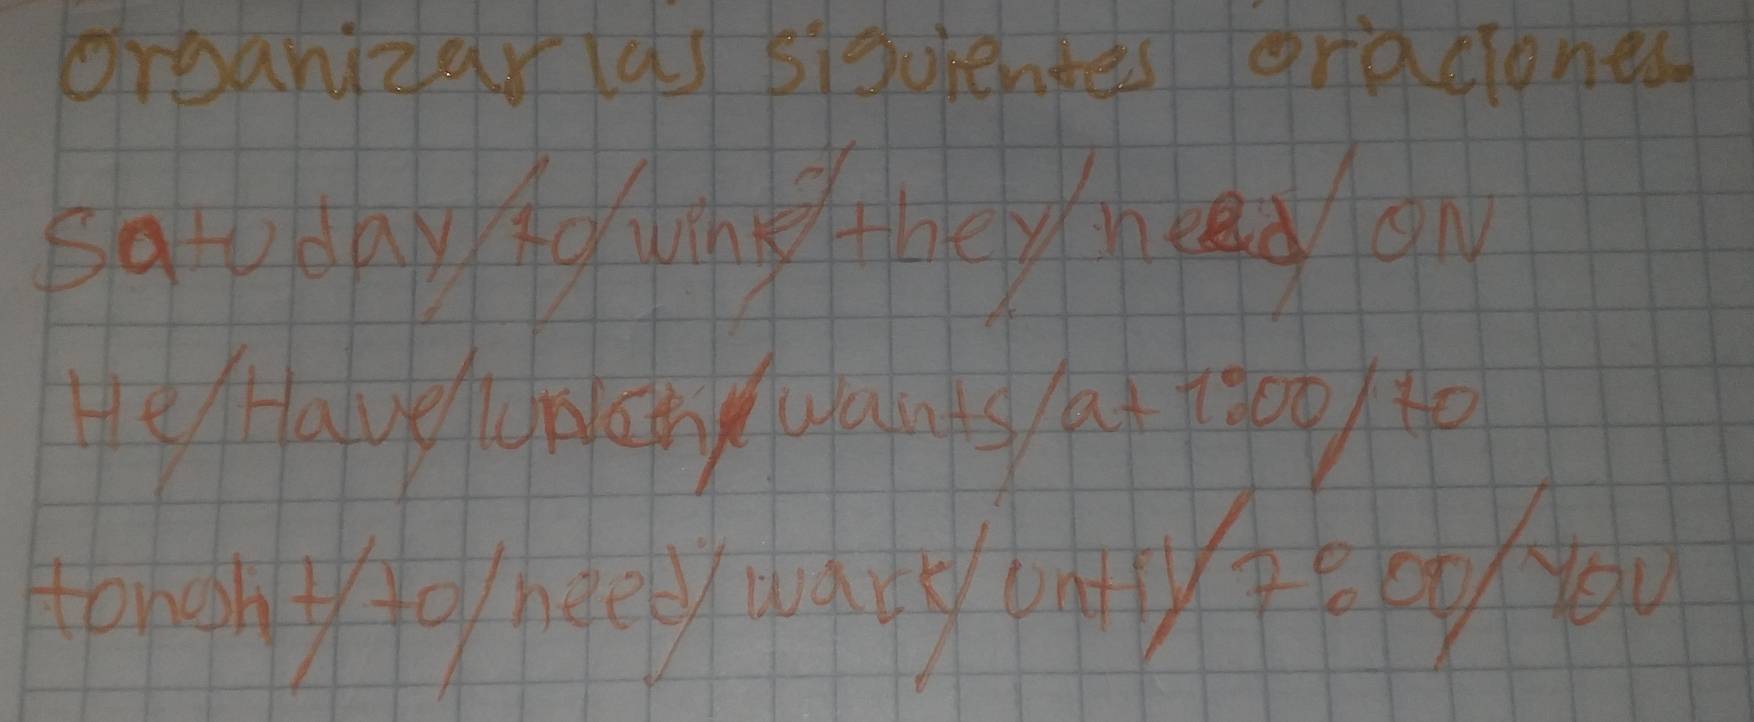 organizar las siguientes oraciones.
Satuday/to/wink/they/need/ON
He/Have/Lunch/wants/at 1:00/to
tongh t/to/need/wark/until/7:00/YOU